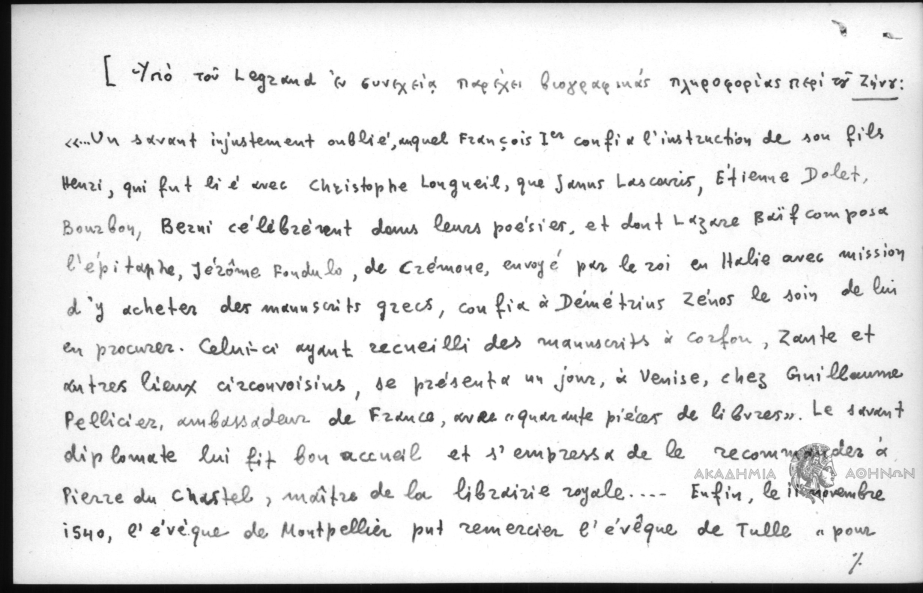 [ Ὑπὸ τοῦ Legrand ἐν συνεχείᾳ παρέχει βιογραφικάς πληροφορίας περί τοῦ Ζήνου:
«...Un savant injustement oublié, auquel François Ier confia l'instruction de son fils
Henri, qui fut lié avec Christophe Longueil, que Janus Lascaris, Étienne Dolet,
Bourbon, Berni célébrèrent dans leurs poésies, et dont Lazare Baïf composa
l'épitaphe, Jérôme Fondulo, de Crémone, envoyé par le roi en Italie avec mission
d'y acheter des manuscrits grecs, confia à Démétrius Zénos le soin de lui
en procurer. Celui-ci ayant recueilli des manuscrits à Corfou, Zante et
autres lieux circonvoisins, se présenta un jour, à Venise, chez Guillaume
Pellicier, ambassadeur de France, avec «quarante pièces de livres». Le savant
diplomate lui fit bon accueil et s'empressa de le recommander à
Pierre du Chastel, maître de la librairie royale.... Enfin, le 11 novembre
1540, l'évêque de Montpellier put remercier l'évêque de Tulle «pour
%
ΑΚΑΔΗΜΙΑ ΑΘΗΝΩΝ